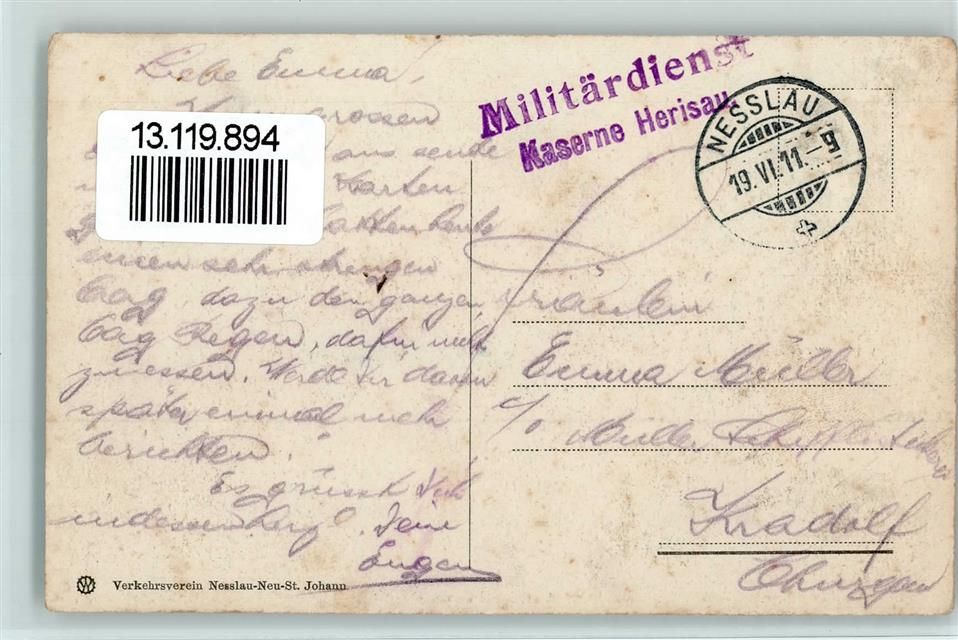 Liebe Emma,
grossen
13.119.894
aus sende
Karten
hatten heute
einen sehr strengen
Tag, dazu den ganzen
Tag Regen, dafür nicht
zu essen. Werde dir dann
später einmal mehr
berichten.
Es grüsst Dich
indessen herzl. Dein
Eugen
Verkehrsverein Nesslau-Neu-St. Johann
Militärdienst
Kaserne Herisau.
NESSLAU
19.VI.11.-9
Fräulein
Emma Müller
c/o Müller, Schifflistickerei
Kradolf
Thurgau